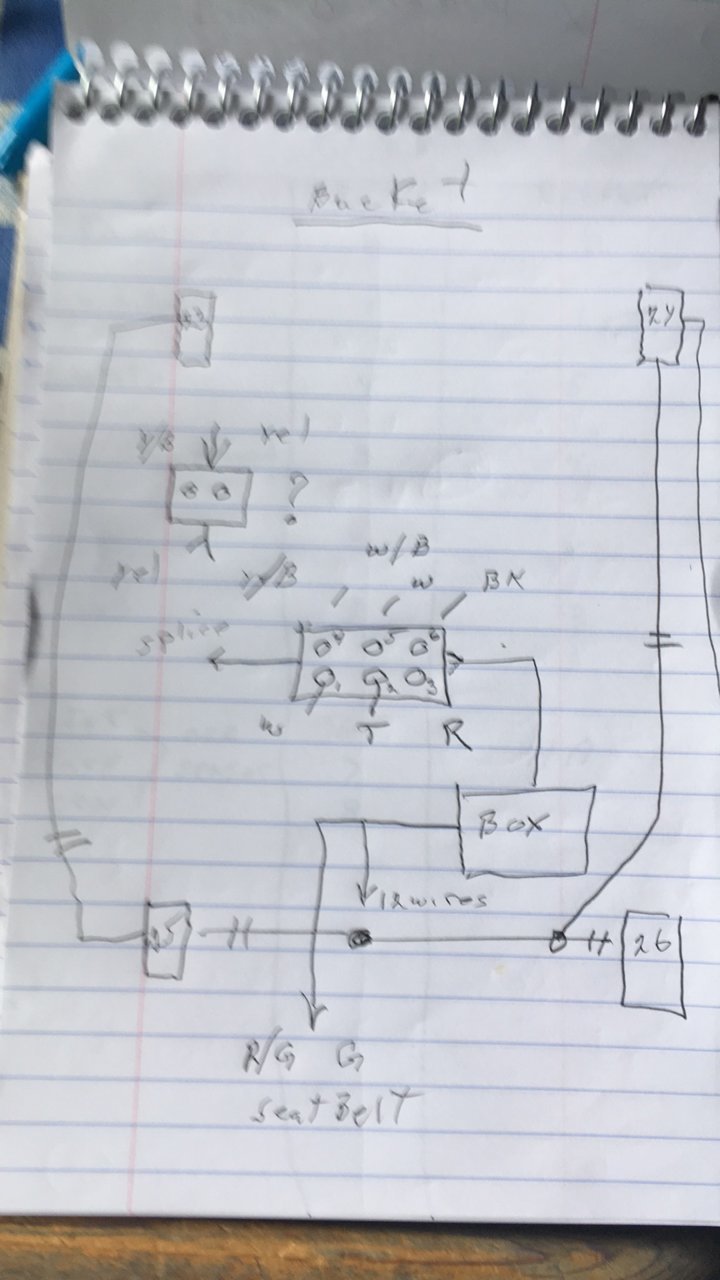 Bucket
23
24
Y/B yel
?
yel Y/B
w/B
w BK
splice
4 5 6
1 2 3
w T R
BOX
12 wires
25
26
R/G G
seat Belt